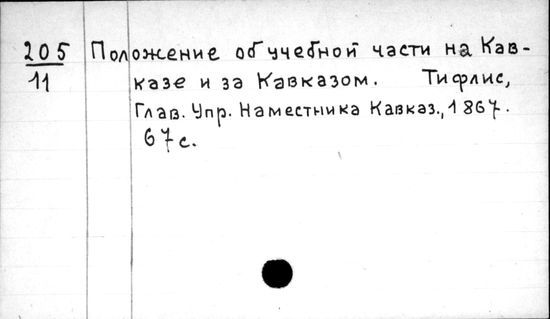 205 Положение об учебной части на Кав-
11 казе и за Кавказом. Тифлис,
Глав. Упр. Наместника Кавказ., 1867.
67 с.